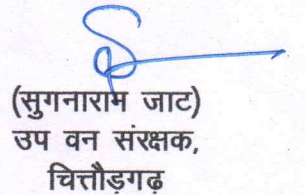 (सुगनाराम जाट)
उप वन संरक्षक,
चित्तौड़गढ़